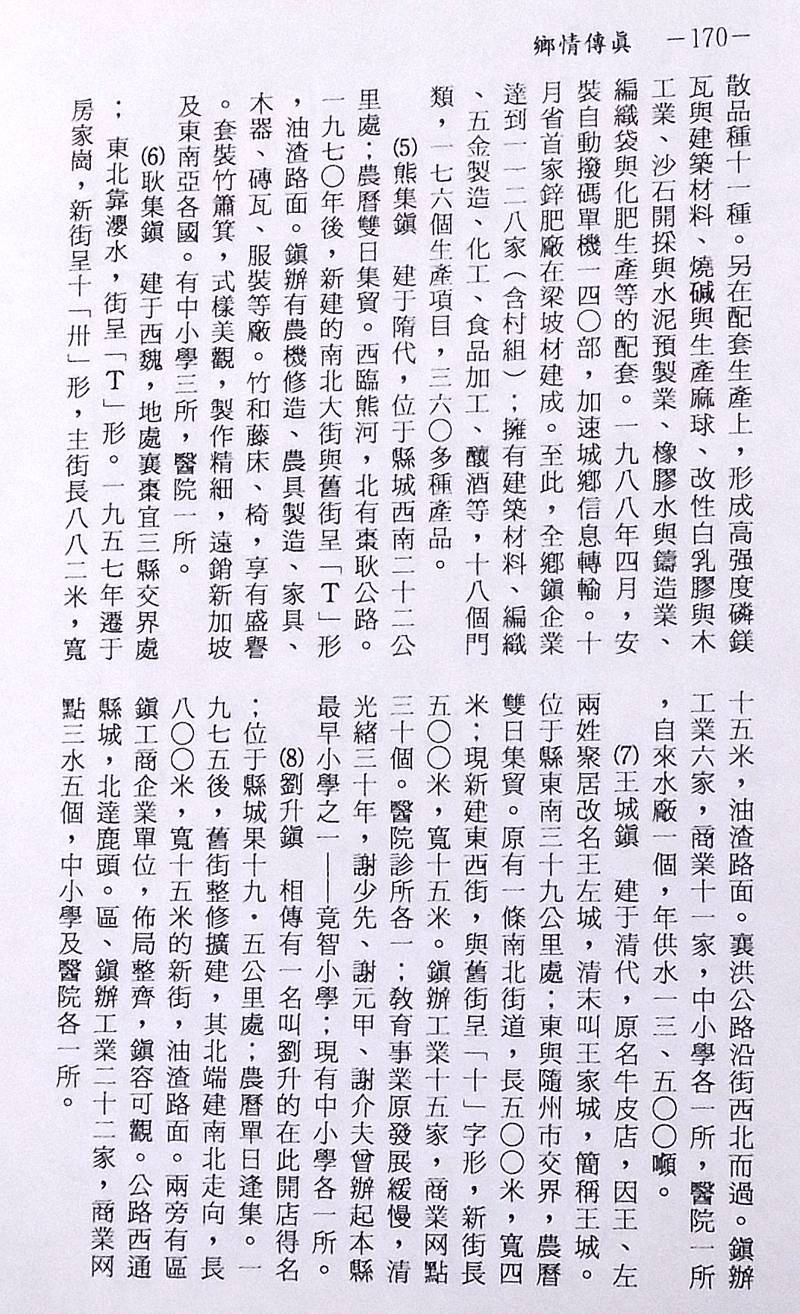 鄉情傳眞 －170－
散品種十一種。另在配套生產上，形成高强度磷鎂
瓦與建築材料、燒碱與生產麻球、改性白乳膠與木
工業、沙石開採與水泥預製業、橡膠水與鑄造業、
編織袋與化肥生產等的配套。一九八八年四月，安
裝自動撥碼單機一四〇部，加速城鄉信息轉輸。十
月省首家鋅肥廠在梁坡材建成。至此，全鄉鎭企業
達到一一二八家（含村組）；擁有建築材料、編織
、五金製造、化工、食品加工、釀酒等，十八個門
類，一七六個生產項目，三六〇多種產品。
⑸熊集鎭　建于隋代，位于縣城西南二十二公
里處；農曆雙日集貿。西臨熊河，北有棗耿公路。
一九七〇年後，新建的南北大街與舊街呈「Ｔ」形
，油渣路面。鎭辦有農機修造、農具製造、家具、
木器、磚瓦、服裝等廠。竹和藤床、椅，享有盛譽
。套裝竹簫箕，式樣美觀，製作精細，遠銷新加坡
及東南亞各國。有中小學三所，醫院一所。
⑹耿集鎭　建于西魏，地處襄棗宜三縣交界處
；東北靠瀴水，街呈「Ｔ」形。一九五七年遷于
房家崗，新街呈十「卅」形，主街長八八二米，寬
十五米，油渣路面。襄洪公路沿街西北而過。鎭辦
工業六家，商業十一家，中小學各一所，醫院一所
，自來水廠一個，年供水一三、五〇〇噸。
⑺王城鎭　建于清代，原名牛皮店，因王、左
兩姓聚居改名王左城，清末叫王家城，簡稱王城。
位于縣東南三十九公里處；東與隨州市交界，農曆
雙日集貿。原有一條南北街道，長五〇〇米，寬四
米；現新建東西街，與舊街呈「十」字形，新街長
五〇〇米，寬十五米。鎭辦工業十五家，商業网點
三十個。醫院診所各一；敎育事業原發展緩慢，清
光緒三十年，謝少先、謝元甲、謝介夫曾辦起本縣
最早小學之一——竟智小學；現有中小學各一所。
⑻劉升鎭　相傳有一名叫劉升的在此開店得名
；位于縣城果十九・五公里處；農曆單日逢集。一
九七五後，舊街整修擴建，其北端建南北走向，長
八〇〇米，寬十五米的新街，油渣路面。兩旁有區
鎭工商企業單位，佈局整齊，鎭容可觀。公路西通
縣城，北達鹿頭。區、鎭辦工業二十二家，商業网
點三水五個，中小學及醫院各一所。